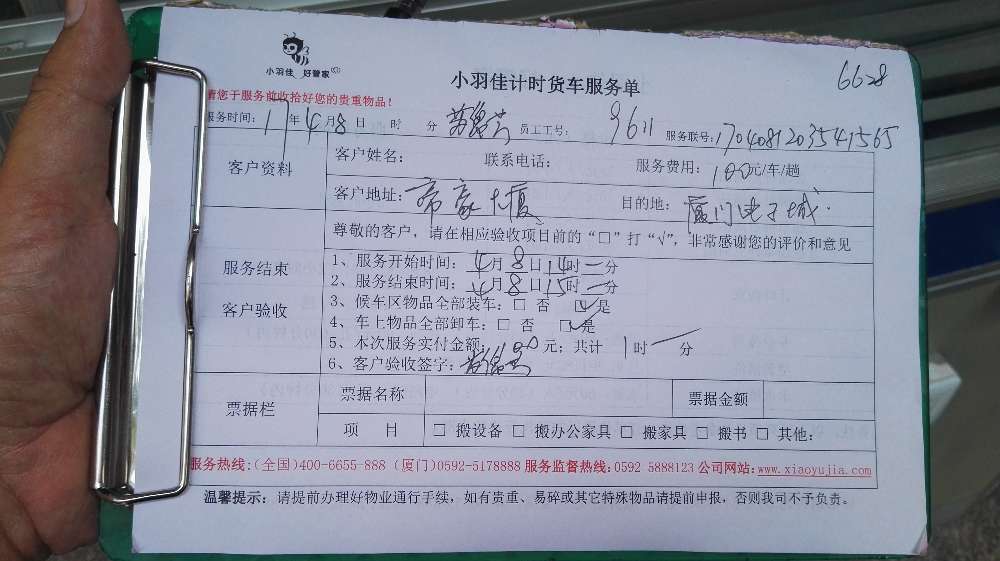 小羽佳 好管家
小羽佳计时货车服务单
6628
请您于服务前收拾好您的贵重物品！
服务时间：17年4月8日 时 分 员工工号：9611 服务联号：1704081203541565
客户资料
客户姓名： 联系电话： 服务费用：100元/车/趟
客户地址：帝豪大厦 目的地：厦门电子城
尊敬的客户，请在相应验收项目前的“□”打“√”，非常感谢您的评价和意见
服务结束
客户验收
1、服务开始时间：4月8日14时—分
2、服务结束时间：4月8日15时—分
3、候车区物品全部装车：□ 否 ☑是
4、车上物品全部卸车：□ 否 ☑是
5、本次服务实付金额： 元；共计 1时—分
6、客户验收签字：
票据栏
票据名称 票据金额
项 目 □ 搬设备 □ 搬办公家具 □ 搬家具 □ 搬书 □ 其他：
服务热线：(全国)400-6655-888 (厦门)0592-5178888 服务监督热线：0592 5888123 公司网站：www.xiaoyujia.com
温馨提示：请提前办理好物业通行手续，如有贵重、易碎或其它特殊物品请提前申报，否则我司不予负责。